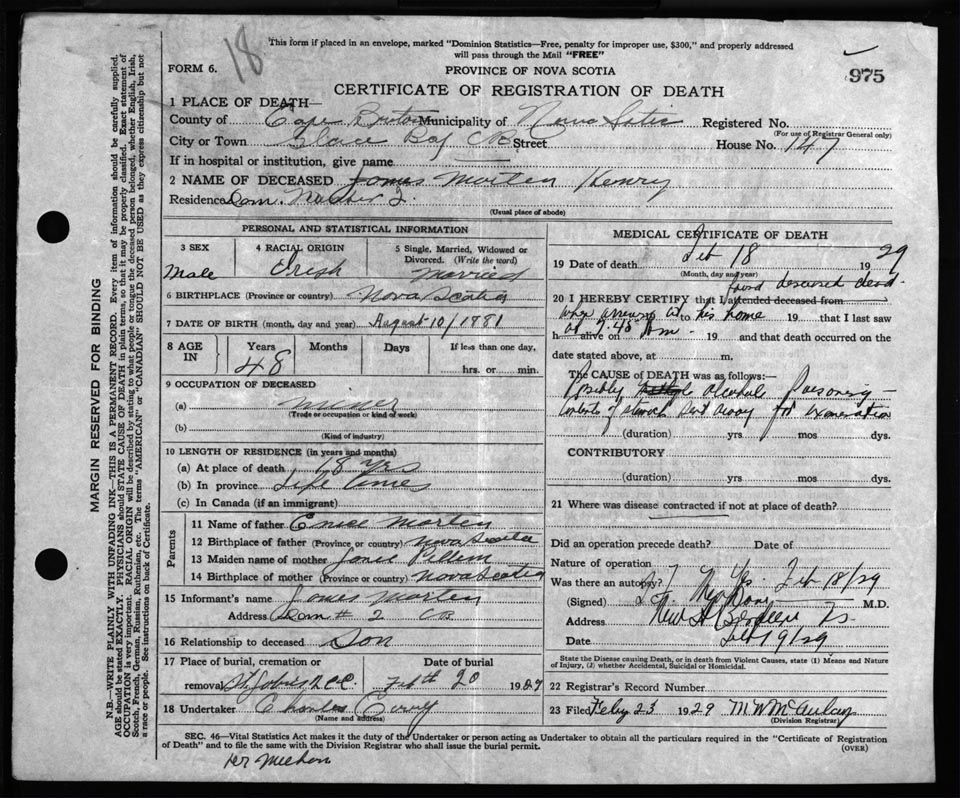 18
This form if placed in an envelope, marked "Dominion Statistics—Free, penalty for improper use, $300," and properly addressed
will pass through the Mail "FREE"
975
FORM 6.
PROVINCE OF NOVA SCOTIA
CERTIFICATE OF REGISTRATION OF DEATH
1 PLACE OF DEATH—
County of Cape Breton Municipality of Nova Sotia Registered No.
(For use of Registrar General only)
City or Town Glace Bay CB Street House No. 147
If in hospital or institution, give name
2 NAME OF DECEASED James Morten Henry
Residence Dom. No 2
(Usual place of abode)
PERSONAL AND STATISTICAL INFORMATION
3 SEX
Male
4 RACIAL ORIGIN
Irish
5 Single, Married, Widowed or
Divorced. (Write the word)
Married
6 BIRTHPLACE (Province or country) Nova Scotia
7 DATE OF BIRTH (month, day and year) August 10/1881
8 AGE IN
Years Months Days If less than one day,
48 hrs. or min.
9 OCCUPATION OF DECEASED
(a) miner
(Trade or occupation or kind of work)
(b)
(Kind of industry)
10 LENGTH OF RESIDENCE (in years and months)
(a) At place of death 18 yrs
(b) In province Life time
(c) In Canada (if an immigrant)
Parents
11 Name of father Morten
12 Birthplace of father (Province or country) Nova Scotia
13 Maiden name of mother
14 Birthplace of mother (Province or country) Nova Scotia
15 Informant's name James Morten
Address Dom # 2 CB
16 Relationship to deceased Son
17 Place of burial, cremation or Date of burial
removal St Johns Feb 20 1929
18 Undertaker Charles Curry
(Name and address)
MEDICAL CERTIFICATE OF DEATH
19 Date of death Feb 18 1929
(Month, day and year)
found deceased dead
20 I HEREBY CERTIFY that I attended deceased from
when arriving at to his home 19 that I last saw
h alive on at 7.45 am 19 and that death occurred on the
date stated above, at m.
The CAUSE of DEATH was as follows:—
Possibly alcohol Poisoning —
contents of stomach sent away for examination
(duration) yrs mos dys.
CONTRIBUTORY
(duration) yrs mos dys.
21 Where was disease contracted if not at place of death?
Did an operation precede death? Date of
Nature of operation
Was there an autopsy? Yes. Feb 18/29
(Signed) M.D.
Address New Aberdeen NS
Date Feb 19/29
State the Disease causing Death, or in death from Violent Causes, state (1) Means and Nature
of Injury, (2) whether Accidental, Suicidal or Homicidal.
22 Registrar's Record Number
23 Filed Feby 23 1929 M W McAulay
(Division Registrar)
SEC. 46—Vital Statistics Act makes it the duty of the Undertaker or person acting as Undertaker to obtain all the particulars required in the "Certificate of Registration
of Death" and to file the same with the Division Registrar who shall issue the burial permit.
(OVER)
per Meehan
MARGIN RESERVED FOR BINDING
N.B.—WRITE PLAINLY WITH UNFADING INK—THIS IS A PERMANENT RECORD. Every item of information should be carefully supplied.
AGE should be stated EXACTLY. PHYSICIANS should STATE CAUSE OF DEATH in plain terms, so that it may be properly classified. Exact statement of
OCCUPATION is very important. RACIAL ORIGIN will be described by stating to what people or tongue the deceased person belonged, whether English, Irish,
Scotch, French, German, Russian, Ruthenian, etc. The terms "AMERICAN" or "CANADIAN" SHOULD NOT BE USED as they express citizenship but not
a race or people. See instructions on back of Certificate.